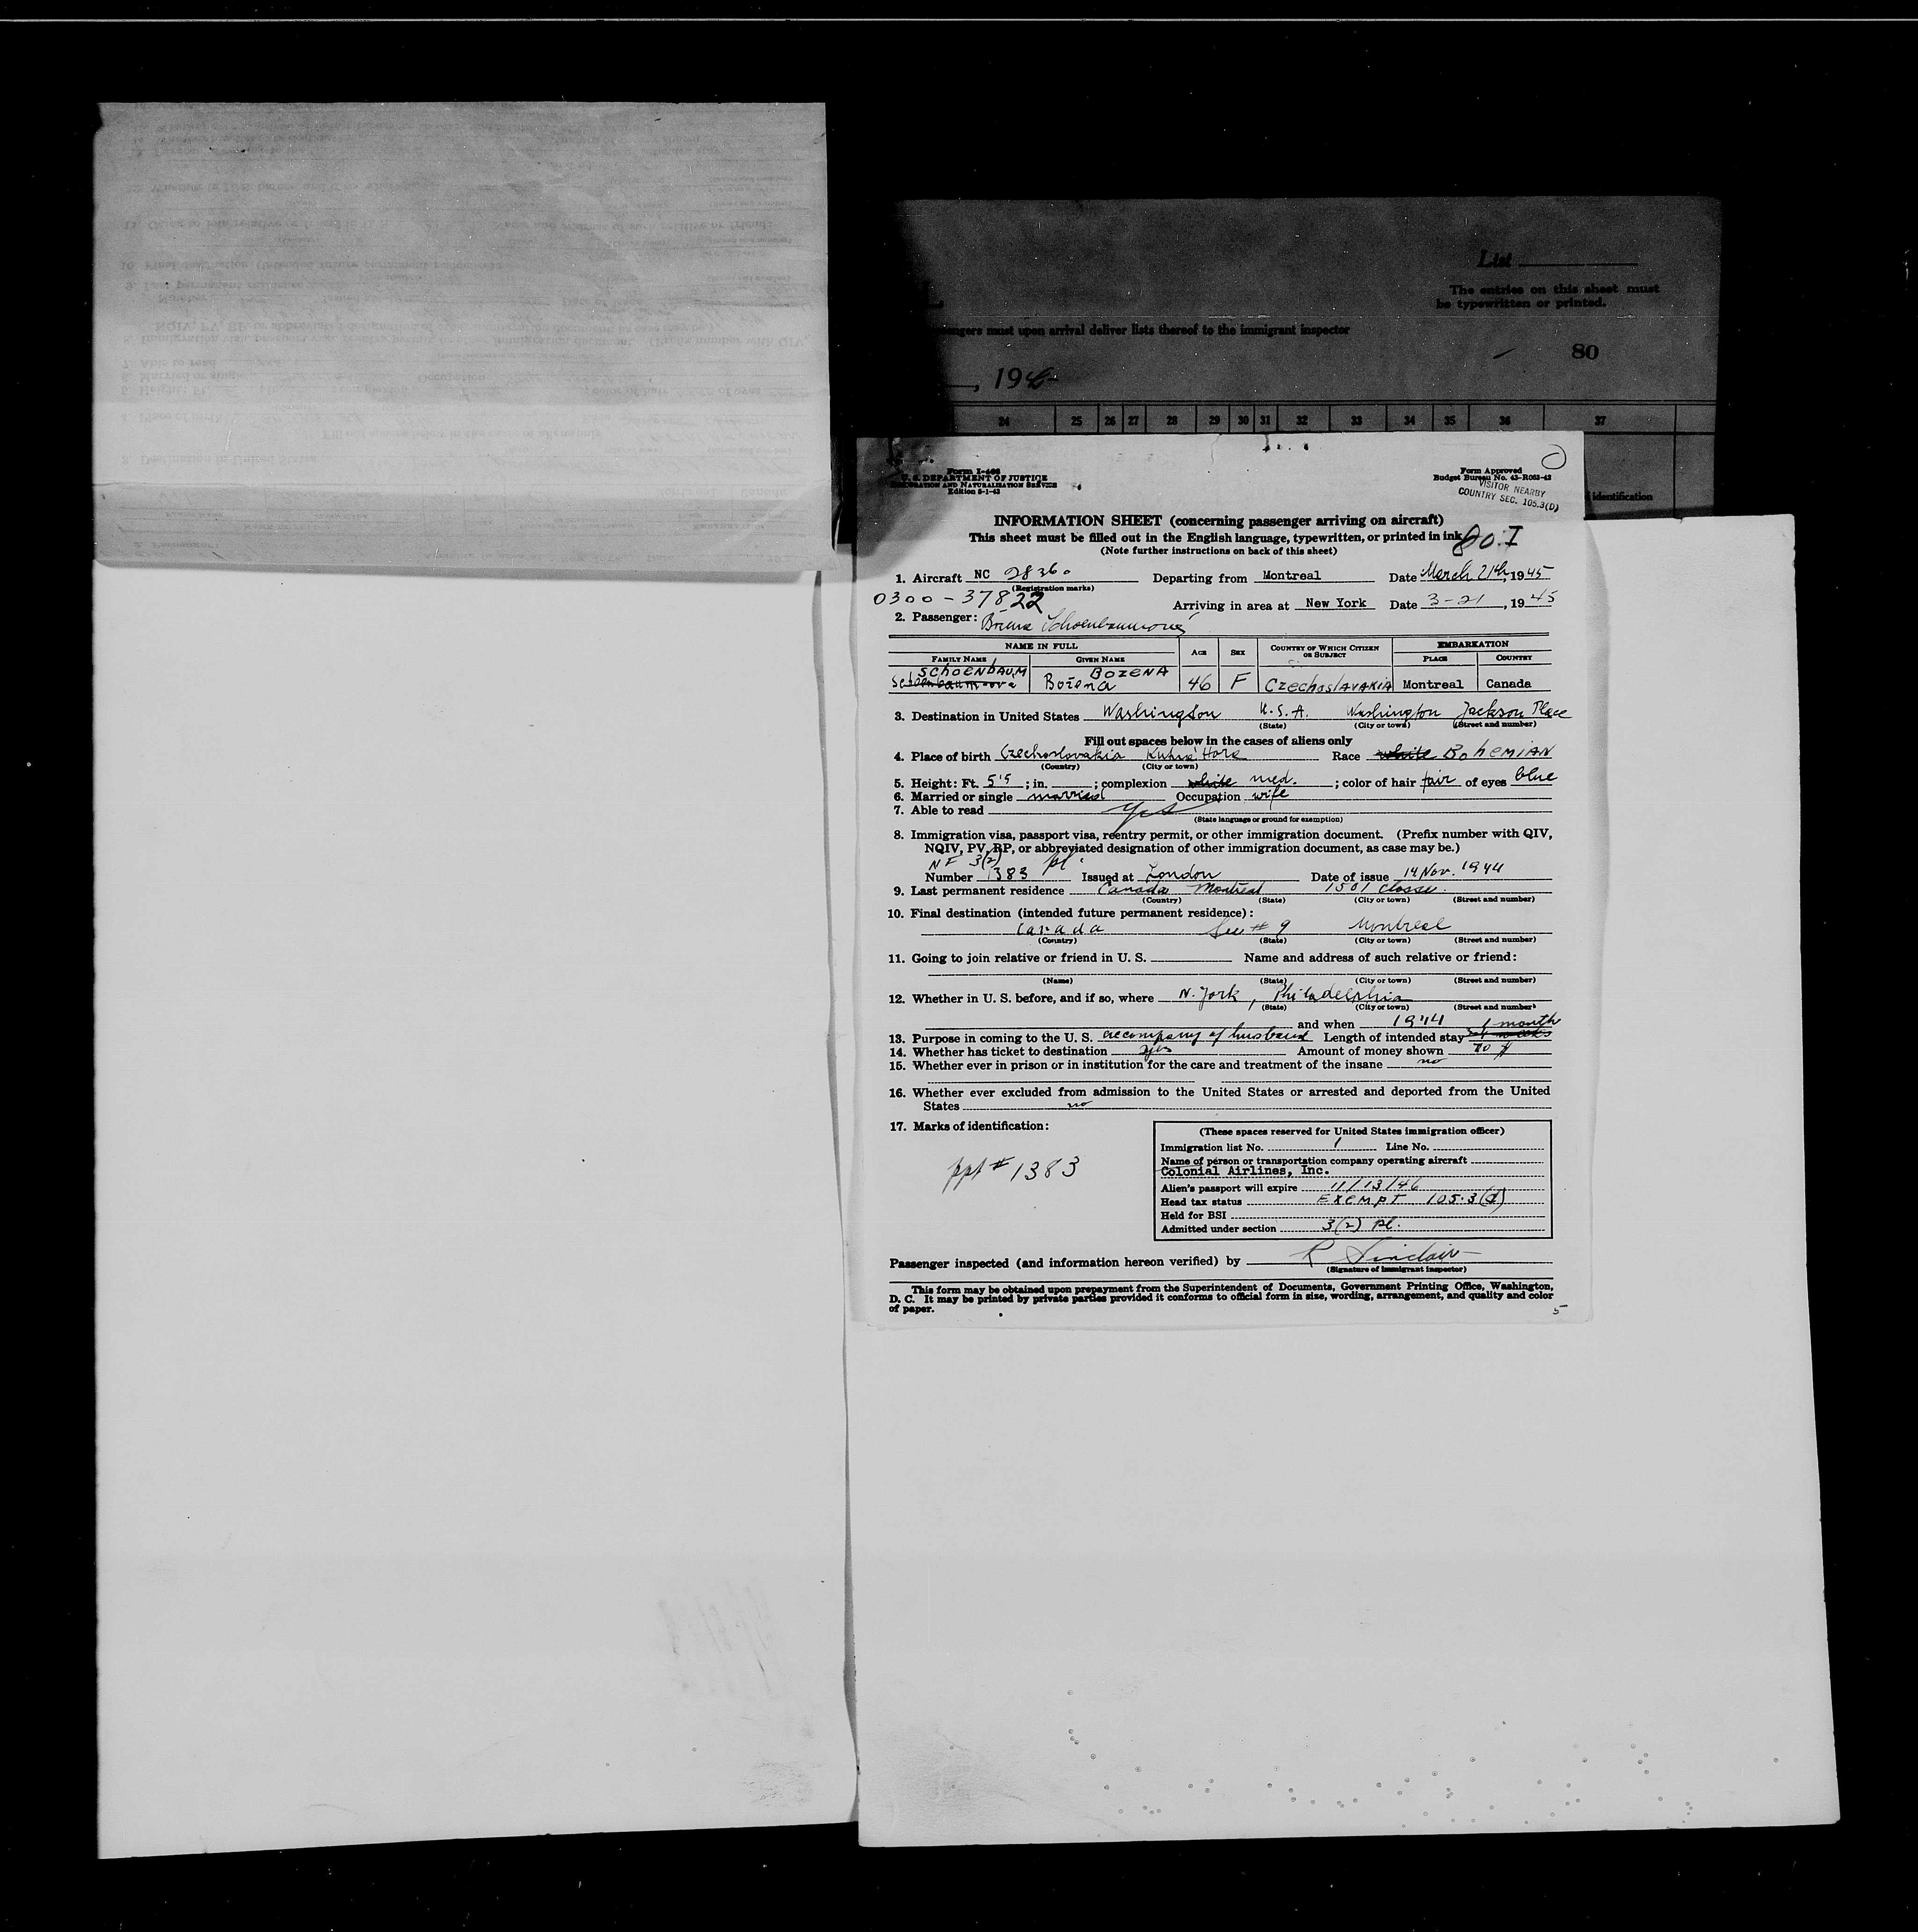 List
The entries on this sheet must
be typewritten or printed.
ngers must upon arrival deliver lists thereof to the immigrant inspector
80
, 194
24 25 26 27 28 29 30 31 32 33 34 35 36 37
identification
Form I-466
U. S. DEPARTMENT OF JUSTICE
Immigration and Naturalization Service
Edition 5-1-43
Form Approved
Budget Bureau No. 43-R063-42
VISITOR NEARBY
COUNTRY SEC. 105.3(D)
INFORMATION SHEET (concerning passenger arriving on aircraft)
This sheet must be filled out in the English language, typewritten, or printed in ink
80-I
(Note further instructions on back of this sheet)
1. Aircraft NC 28360 Departing from Montreal Date March 21th, 1945
(Registration marks)
0300-37822
Arriving in area at New York Date 3-21, 1945
2. Passenger:
NAME IN FULL Age Sex Country of Which Citizen or Subject EMBARKATION
Family Name Given Name Place Country
SCHOENBAUM BOZENA
Schoenbaum-ova Božena 46 F Czechoslavakia Montreal Canada
3. Destination in United States Washington U.S.A. Washington Jackson Place
(State) (City or town) (Street and number)
Fill out spaces below in the cases of aliens only
4. Place of birth Czechoslovakia Kutná Hora Race white BohemiAN
(Country) (City or town)
5. Height: Ft. 5'5 ; in. ; complexion white med. ; color of hair fair of eyes blue
6. Married or single married Occupation wife
7. Able to read yes
(State language or ground for exemption)
8. Immigration visa, passport visa, reentry permit, or other immigration document. (Prefix number with QIV,
NQIV, PV, RP, or abbreviated designation of other immigration document, as case may be.)
NF 3(2) pl.
Number 1383 Issued at London Date of issue 14 Nov. 1944
9. Last permanent residence Canada Montreal 1501 Closse.
(Country) (State) (City or town) (Street and number)
10. Final destination (intended future permanent residence):
Canada See # 9 Montreal
(Country) (State) (City or town) (Street and number)
11. Going to join relative or friend in U. S. Name and address of such relative or friend:
(Name) (State) (City or town) (Street and number)
12. Whether in U. S. before, and if so, where N. York, Philadelphia
(State) (City or town) (Street and number)
and when 1944 1 month
13. Purpose in coming to the U. S. accompany of husband Length of intended stay
14. Whether has ticket to destination yes Amount of money shown 70 $
15. Whether ever in prison or in institution for the care and treatment of the insane no
16. Whether ever excluded from admission to the United States or arrested and deported from the United
States no
17. Marks of identification:
ppt # 1383
(These spaces reserved for United States immigration officer)
Immigration list No. 1 Line No.
Name of person or transportation company operating aircraft
Colonial Airlines, Inc.
Alien's passport will expire 11/13/46
Head tax status Exempt 105.3(d)
Held for BSI
Admitted under section 3(2) pl.
Passenger inspected (and information hereon verified) by R Sinclair
(Signature of immigrant inspector)
This form may be obtained upon prepayment from the Superintendent of Documents, Government Printing Office, Washington,
D. C. It may be printed by private parties provided it conforms to official form in size, wording, arrangement, and quality and color
of paper.
5